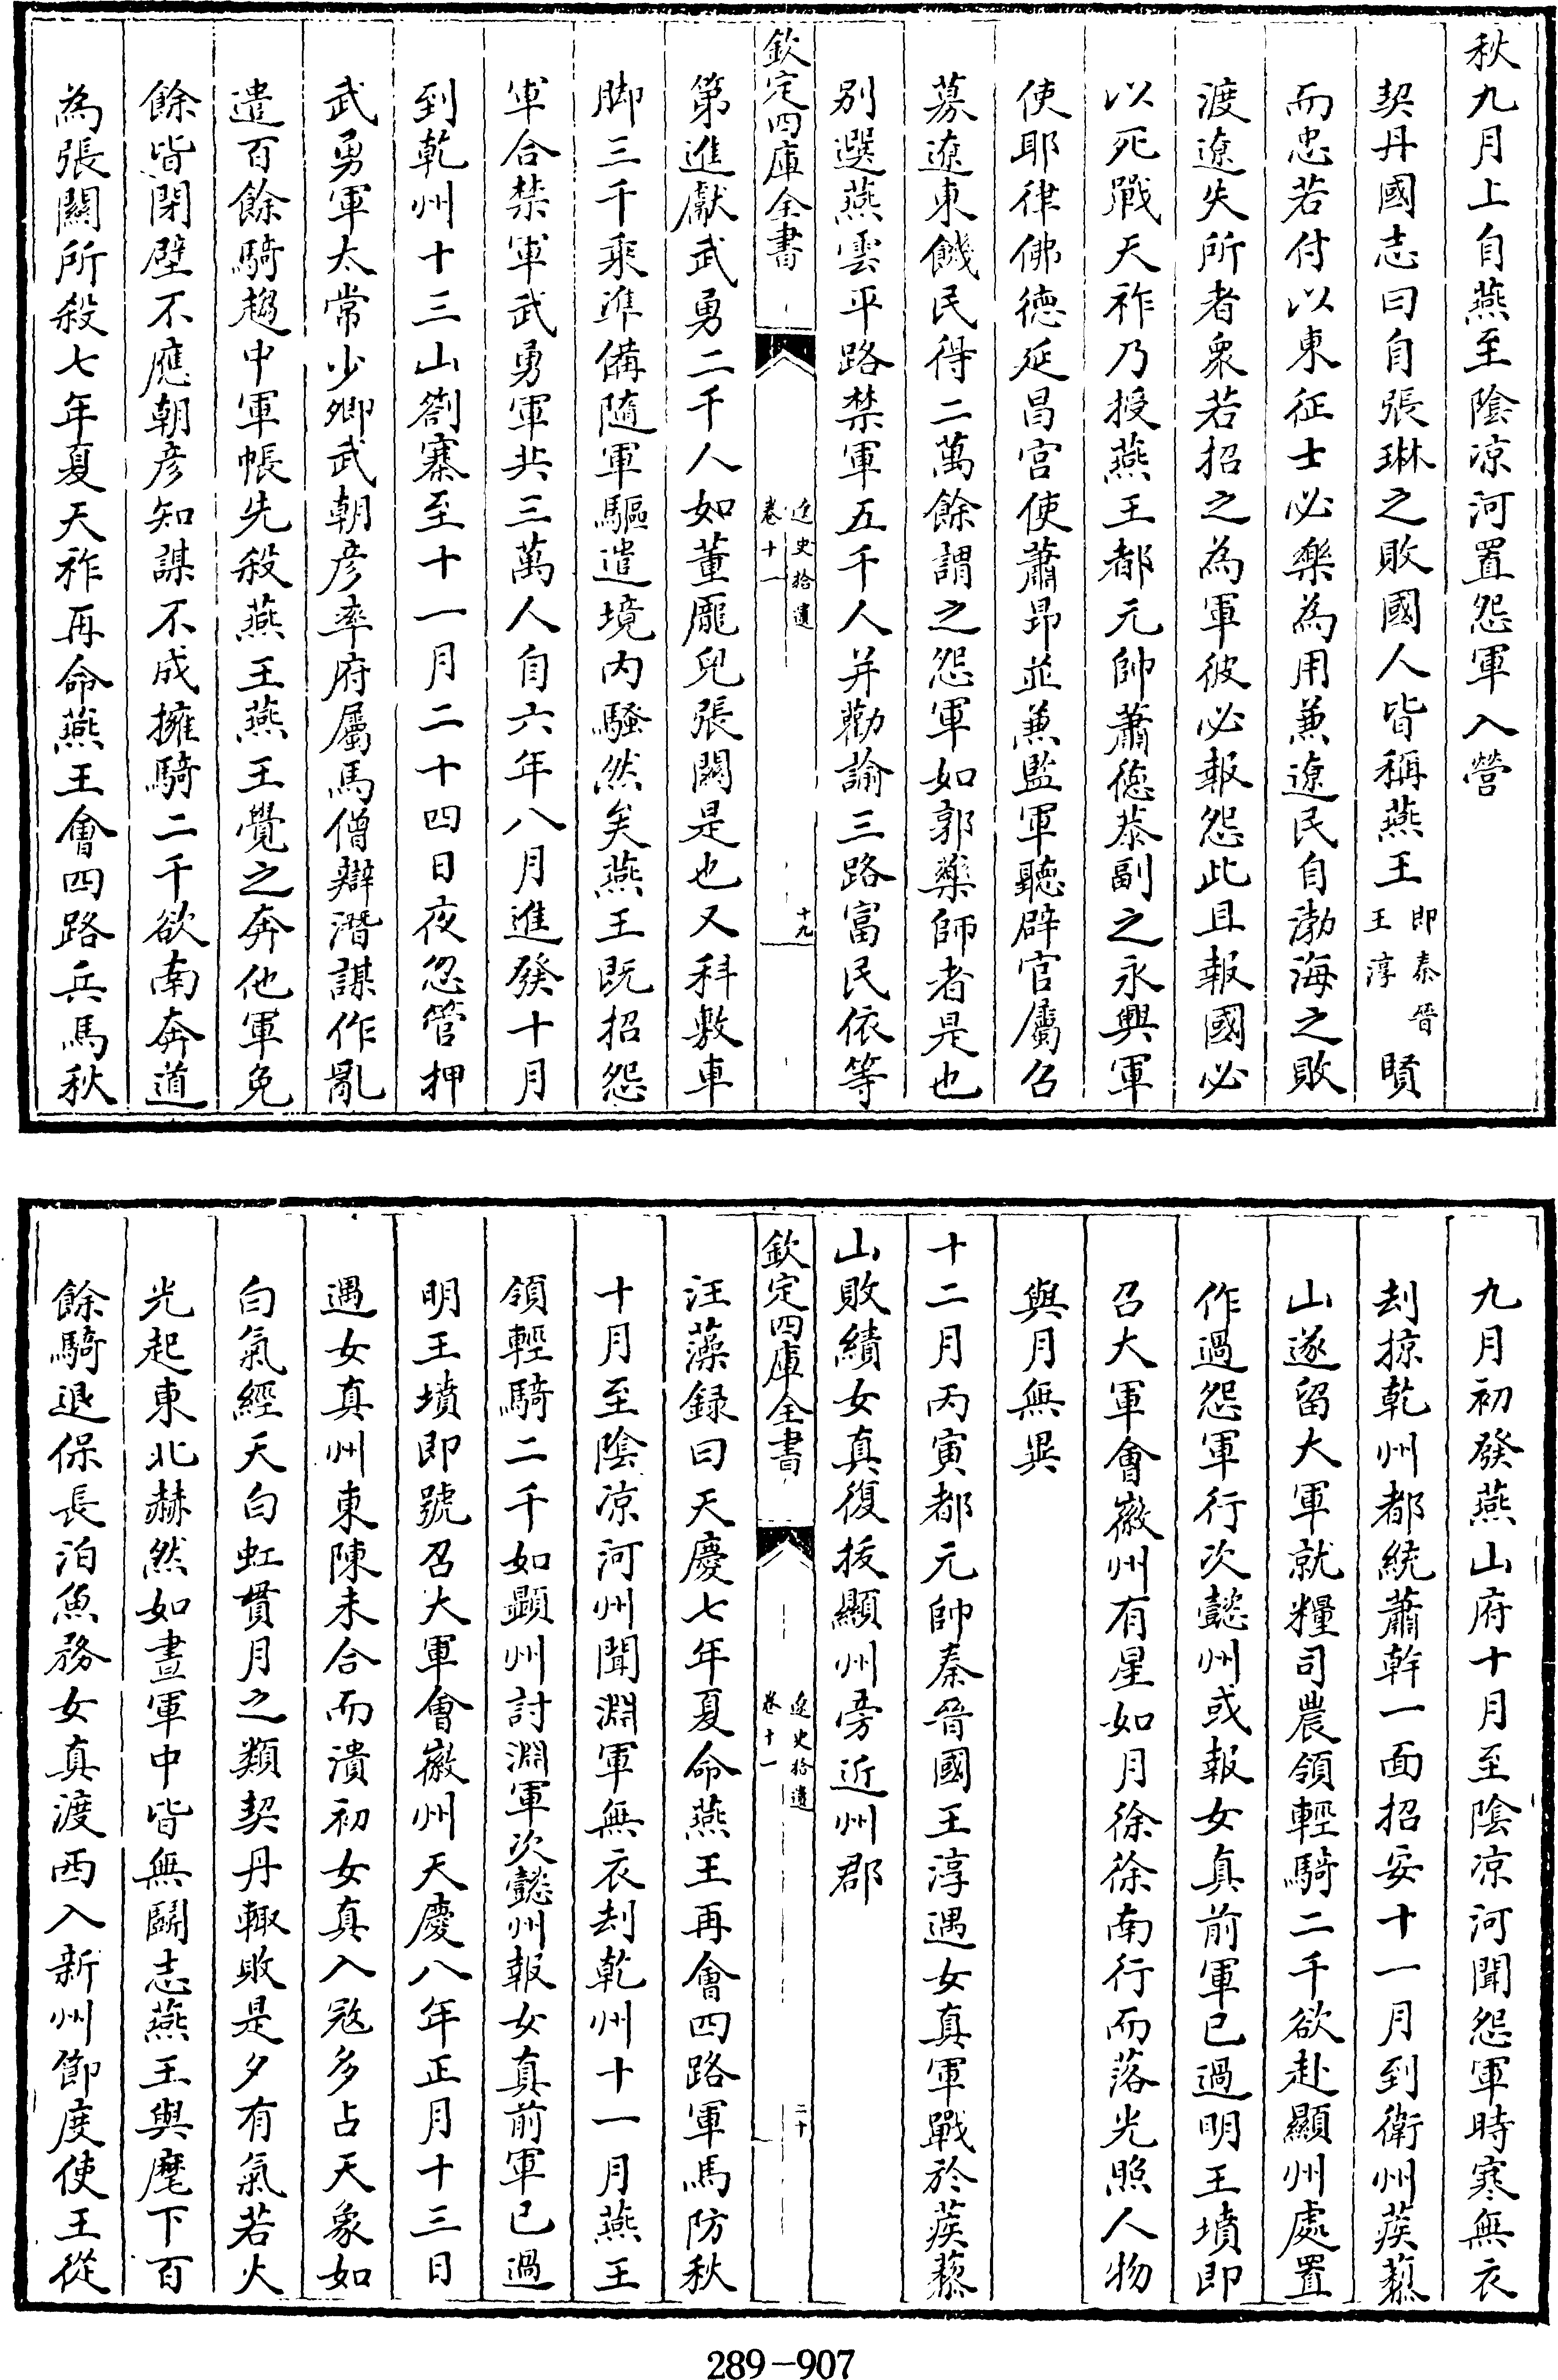 秋九月上自燕至陰凉河置怨軍入營
契丹國志曰自張琳之敗國人皆稱燕王即秦晉王淳賢
而忠若付以東征士必樂為用兼遼民自渤海之敗
渡遼失所者衆若招之為軍彼必報怨此且報國必
以死戰天祚乃授燕王都元帥蕭德恭副之永興軍
使耶律佛德延昌宫使蕭昂並兼監軍聽辟官屬召
募遼東饑民得二萬餘謂之怨軍如郭藥師者是也
别選燕雲平路禁軍五千人并勸諭三路富民依等
欽定四庫全書
遼史拾遺
卷十一
十九
第進獻武勇二千人如董龎兒張關是也又科敷車
脚三千乘準備隨軍驅遣境内騷然矣燕王既招怨
軍合禁軍武勇軍共三萬人自六年八月進發十月
到乾州十三山劄寨至十一月二十四日夜忽管押
武勇軍太常少卿武朝彦率府屬馬僧辯潛謀作亂
遣百餘騎趨中軍帳先殺燕王燕王覺之奔他軍免
餘皆閉壁不應朝彦知謀不成擁騎二千欲南奔道
為張關所殺七年夏天祚再命燕王會四路兵馬秋
九月初發燕山府十月至陰凉河聞怨軍時寒無衣
刦掠乾州都統蕭幹一面招安十一月到衛州蒺藜
山遂留大軍就糧司農領輕騎二千欲赴顯州處置
作過怨軍行次懿州或報女真前軍已過明王墳即
召大軍會徽州有星如月徐徐南行而落光照人物
與月無異
十二月丙寅都元帥秦晉國王淳遇女真軍戰於蒺藜
山敗績女真復拔顯州旁近州郡
欽定四庫全書
遼史拾遺
卷十一
二十
汪藻録曰天慶七年夏命燕王再會四路軍馬防秋
十月至陰凉河州聞淵軍無衣刦乾州十一月燕王
領輕騎二千如顯州討淵軍次懿州報女真前軍已過
明王墳即號召大軍會徽州天慶八年正月十三日
遇女真州東陳未合而潰初女真入寇多占天象如
白氣經天白虹貫月之類契丹輙敗是夕有氣若火
光起東北赫然如晝軍中皆無鬭志燕王與麾下百
餘騎退保長泊魚務女真渡西入新州節度使王從
289-907